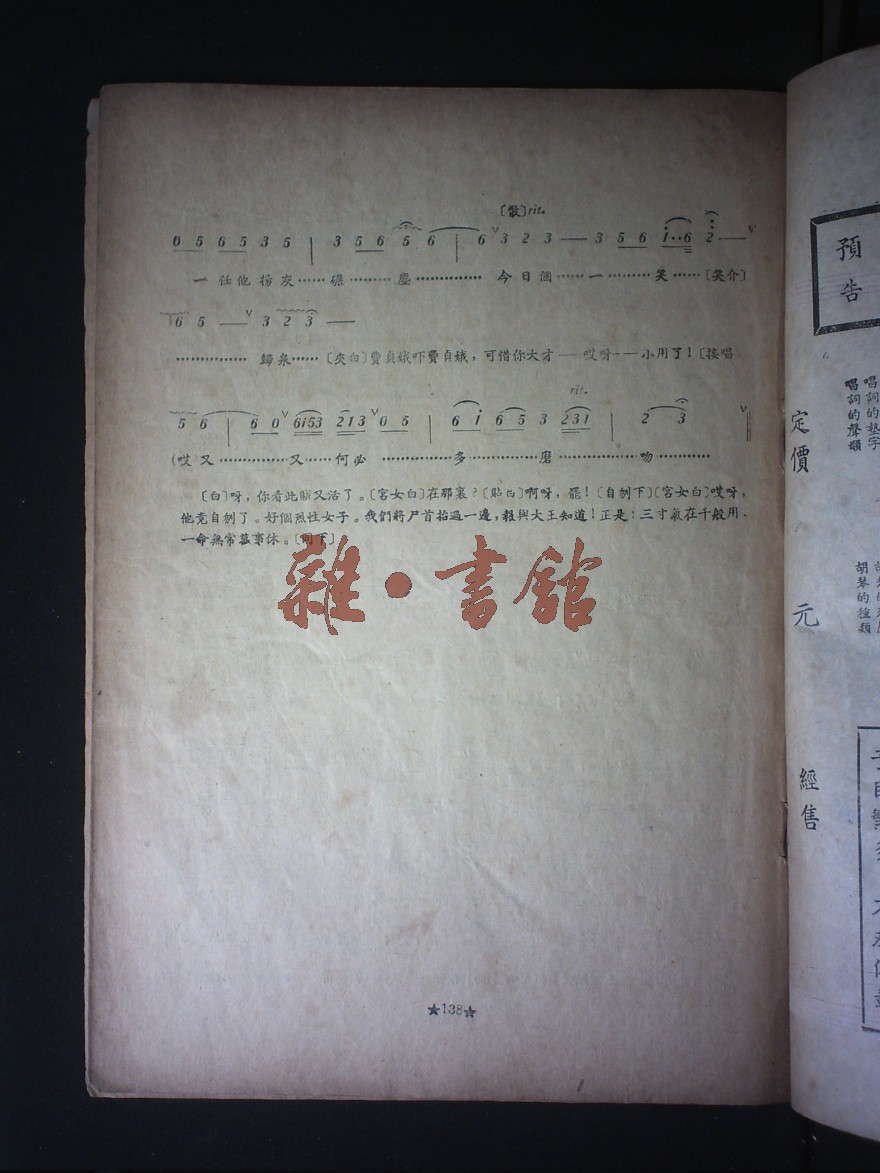 〔散〕rit.
0 5 6 5 3 5 | 3 5 6 5 6 | 6 ∨ 3 2 3 — 3 5 6 i··6 2 — ∨
一任他揚灰……碾………塵…………… 今日個……一……笑……〔笑介〕
6 5 — ∨ 3 2 3 —
…………… 歸泉……〔夾白〕費貞娥吓費貞娥，可惜你大才——哎呀——小用了！〔接唱
rit.
5 6 | 6 0 ∨ 6i53 213 ∨ 0 5 | 6 i 6 5 3 231 | 2 3 ∨
(哎又……………又……何必 ……………多……………磨………………吻…………
〔白〕呀，你看此賊又活了。〔宮女白〕在那裏？〔貼白〕啊呀，罷！〔自刎下〕〔宮女白〕哎呀，
他竟自刎了。好個烈性女子。我們將尸首抬過一邊，報與大王知道！正是：三寸氣在千般用，
一命無常萬事休。〔同下〕
雜·書館
★138★
預告
唱詞的墊字
唱詞的聲韻
定價 元
胡琴的種類
經售